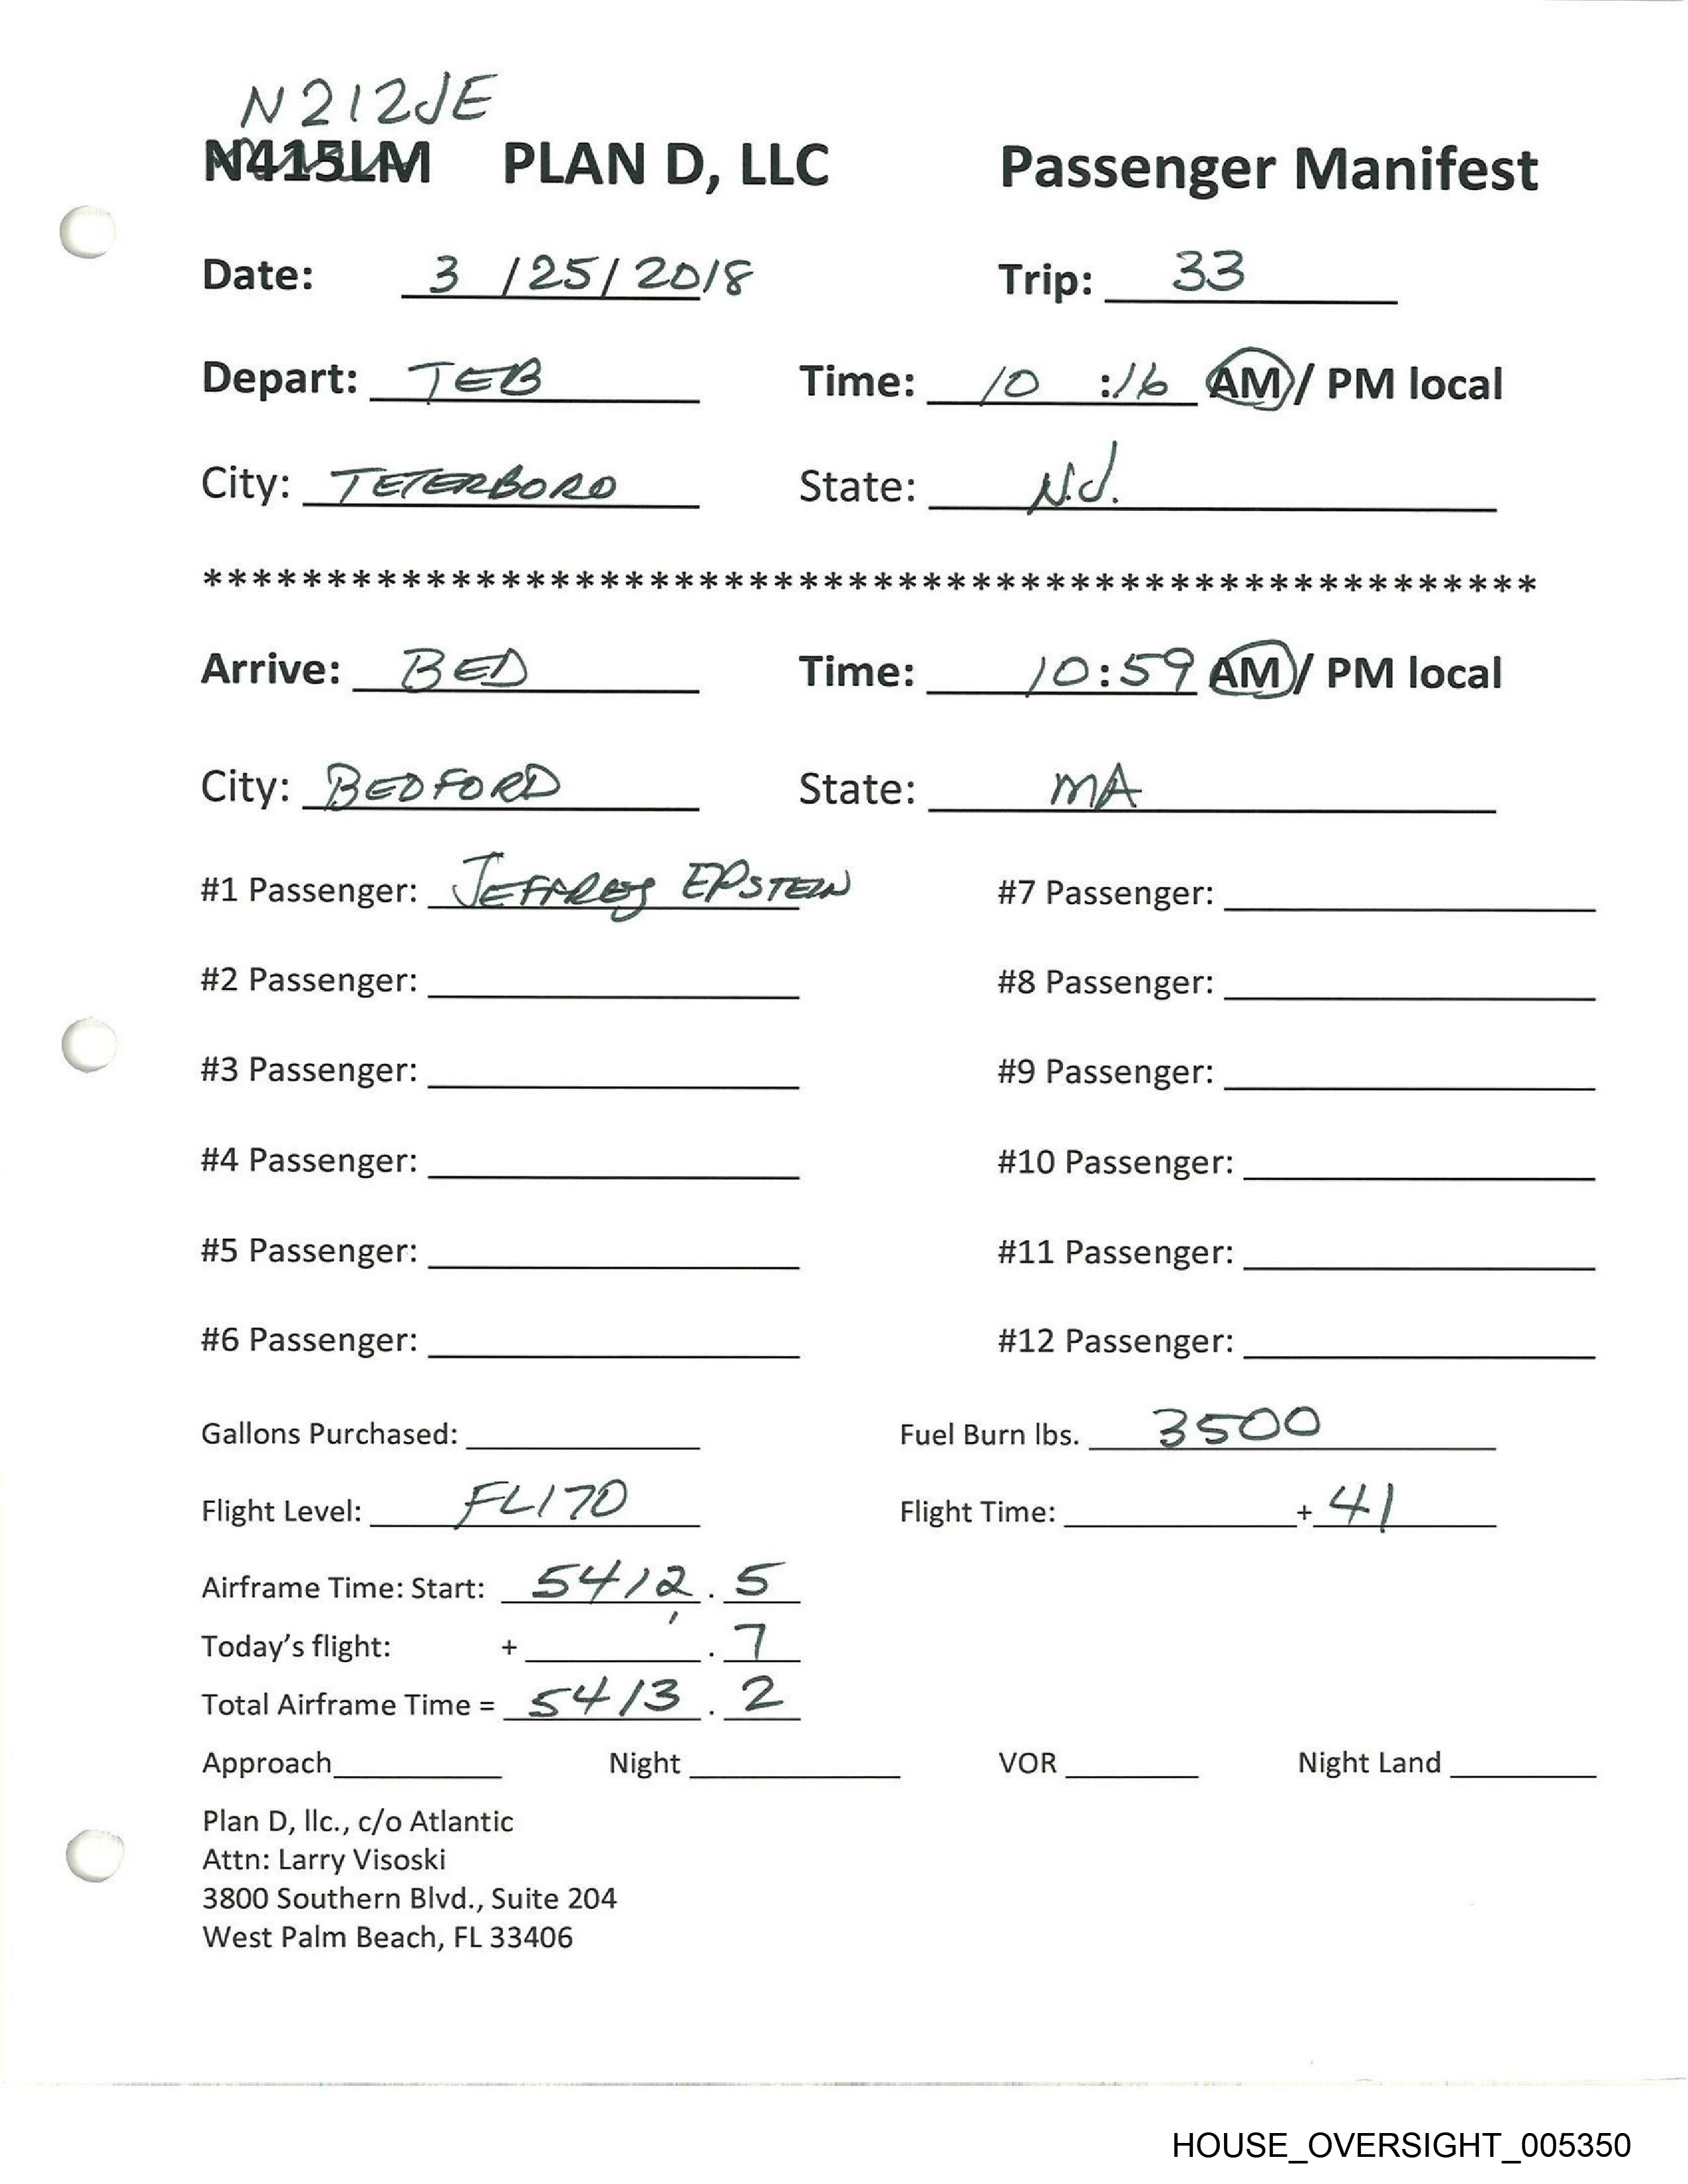 N212JE
N415LM PLAN D, LLC Passenger Manifest
Date: 3 /25/ 2018 Trip: 33
Depart: TEB Time: 10 :16 AM / PM local
City: TETERBORO State: N.J.
******************************************************
Arrive: BED Time: 10:59 AM / PM local
City: BEDFORD State: MA
#1 Passenger: JEFFREY EPSTEIN #7 Passenger:
#2 Passenger: #8 Passenger:
#3 Passenger: #9 Passenger:
#4 Passenger: #10 Passenger:
#5 Passenger: #11 Passenger:
#6 Passenger: #12 Passenger:
Gallons Purchased: Fuel Burn lbs. 3500
Flight Level: FL170 Flight Time: + 41
Airframe Time: Start: 5412 . 5
Today's flight: + . 7
Total Airframe Time = 5413 . 2
Approach Night VOR Night Land
Plan D, llc., c/o Atlantic
Attn: Larry Visoski
3800 Southern Blvd., Suite 204
West Palm Beach, FL 33406
HOUSE_OVERSIGHT_005350